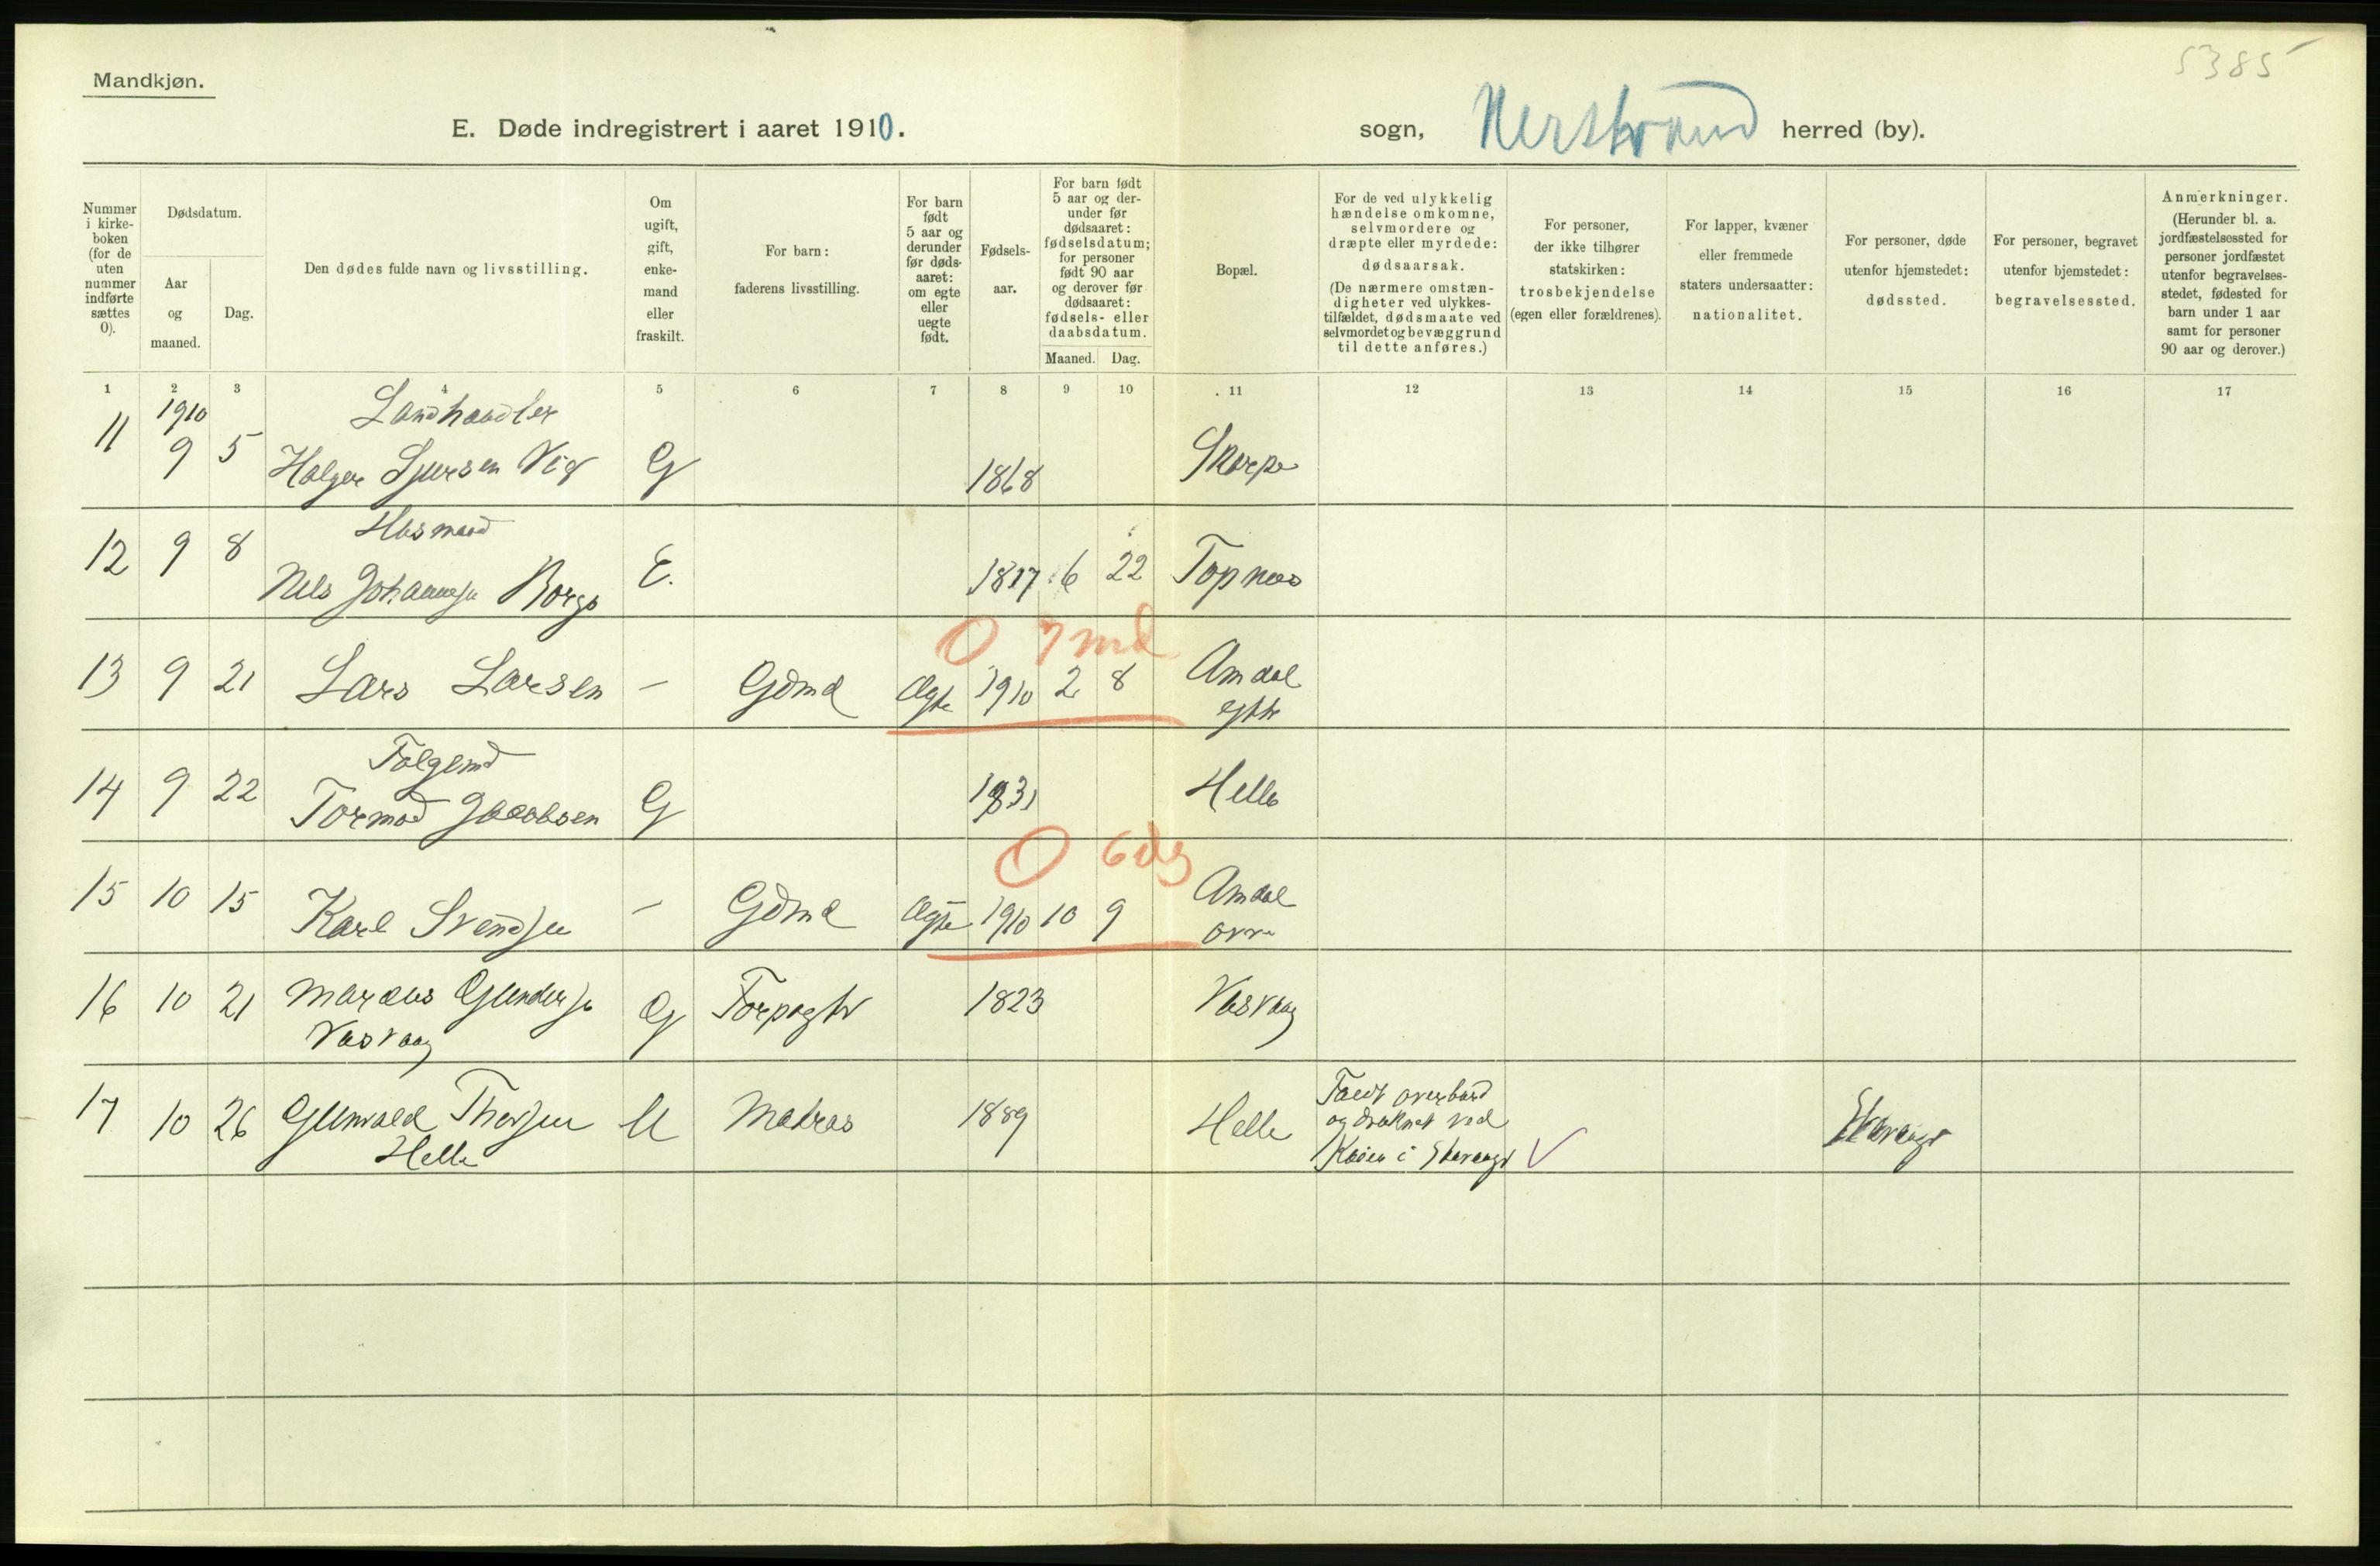 5385
Mandkjøn.
E. Døde indregistrert i aaret 1910.
sogn, Nerstrand herred (by).
Nummer i kirke-boken (for de uten nummer indførte sættes 0).
Dødsdatum.
Aar og maaned.
Dag.
Den dødes fulde navn og livsstilling.
Om ugift, gift, enke-mand eller fraskilt.
For barn: faderens livsstilling.
For barn født 5 aar og derunder før døds-aaret: om egte eller uegte født.
Fødsels-aar.
For barn født 5 aar og der-under før dødsaaret: fødselsdatum; for personer født 90 aar og derover før dødsaaret: fødsels- eller daabsdatum.
Maaned. Dag.
Bopæl.
For de ved ulykkelig hændelse omkomne, selvmordere og dræpte eller myrdede: dødsaarsak. (De nærmere omstæn-digheter ved ulykkes-tilfældet, dødsmaate ved selvmordet og bevæggrund til dette anføres.)
For personer, der ikke tilhører statskirken: trosbekjendelse (egen eller forældrenes).
For lapper, kvæner eller fremmede staters undersaatter: nationalitet.
For personer, døde utenfor hjemstedet: dødssted.
For personer, begravet utenfor hjemstedet: begravelsessted.
Anmerkninger. (Herunder bl. a. jordfæstelsessted for personer jordfæstet utenfor begravelses-stedet, fødested for barn under 1 aar samt for personer 90 aar og derover.)
1 2 3 4 5 6 7 8 9 10 11 12 13 14 15 16 17
1910 Landhandler
11 9 5 Holger Sjursen Vig G 1868 Skorpe
Husmand
12 9 8 Nils Johannesn Borgo E. 1817 6 22 Topnes
0 7 md
13 9 21 Lars Larsen – Gdmd Ægte 1910 2 8 Amdal
Folgemd
14 9 22 Tormod Jacobsen G 1831 Helle
0 6 dg
15 10 15 Karl Svendsen – Gdmd Ægte 1910 10 9 Amdal
øvre
16 10 21 Marcus Gundersen G Forpagtr 1823 Vasvaag
Vasvaag
17 10 26 Gunvald Thorsen U Matros 1889 Helle Faldt overbord
Helle og druknet ved
Kaien i Stavanger V Stavanger